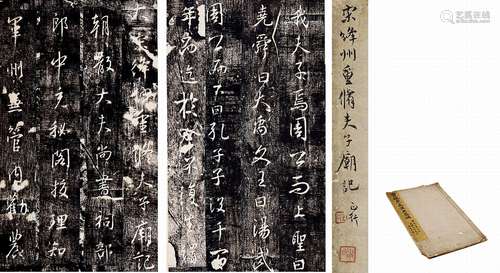 宋絳州重脩夫子廟記
我夫子焉周公而上聖曰
堯舜曰大禹文王曰湯武
周公而下曰孔子子沒千百
年迄於
大宋絳州重脩夫子廟記
朝散大夫尚書祠部
郎中充秘閣校理知
軍州兼管內勸農